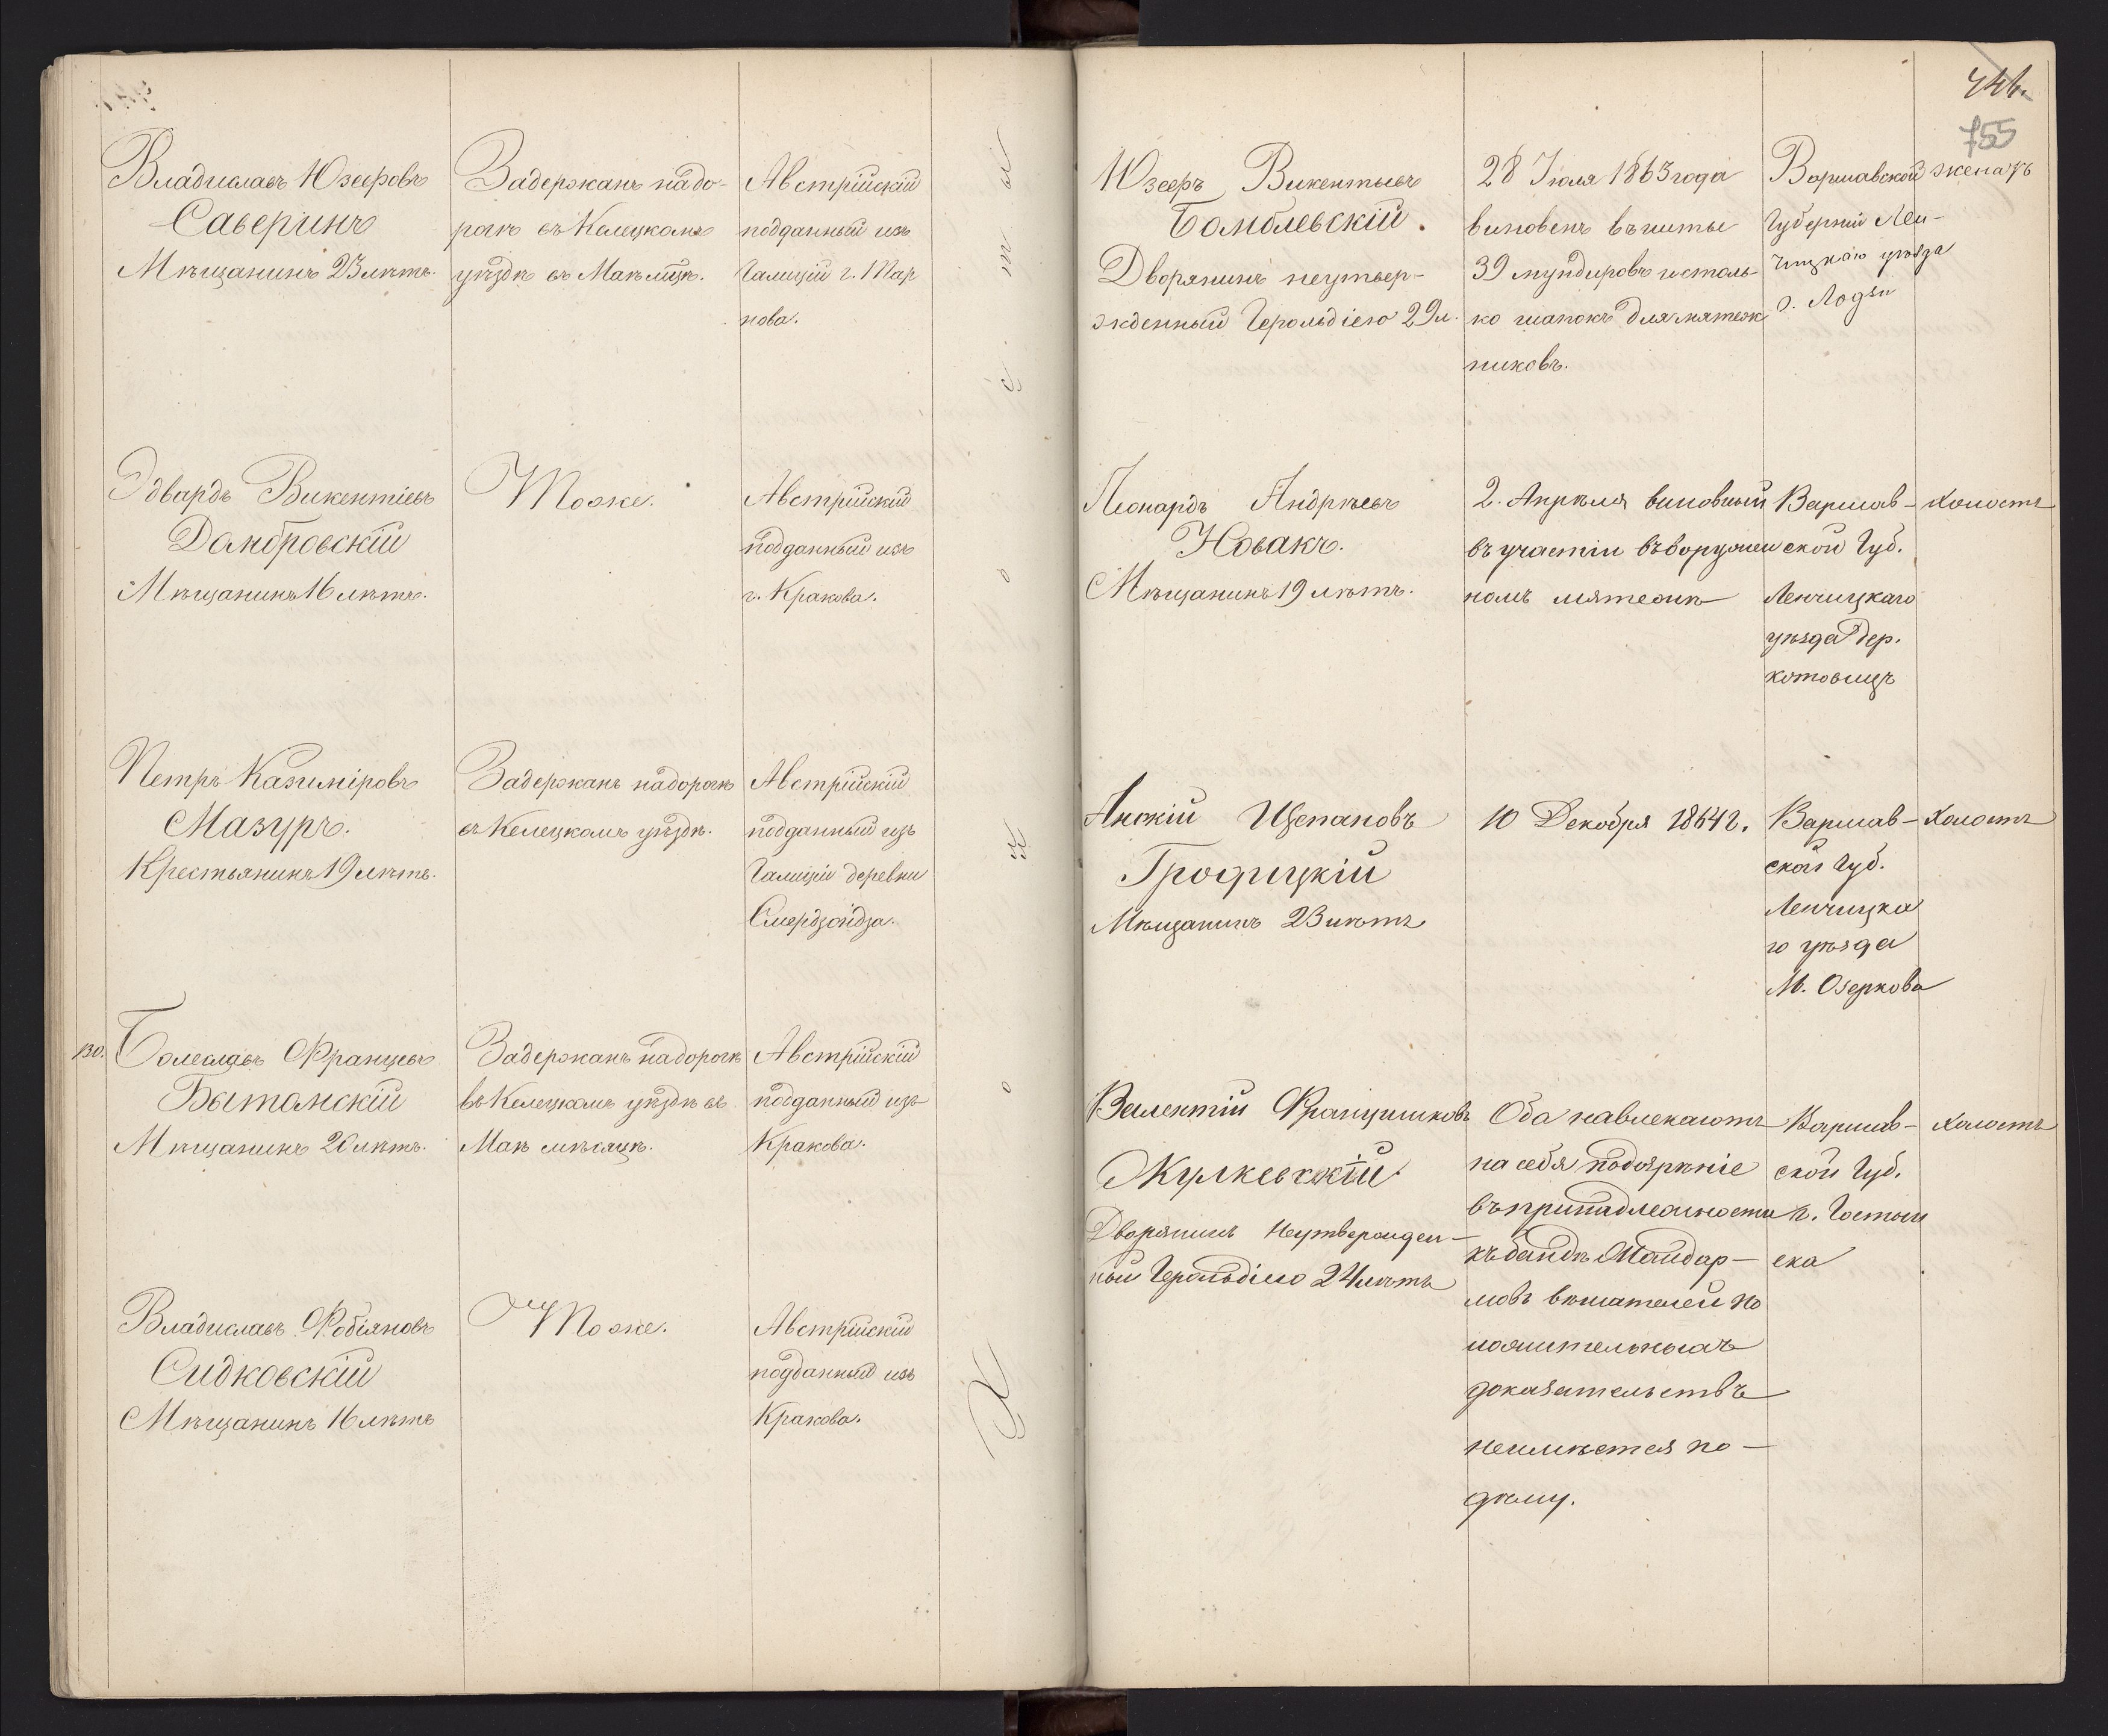 Владиславъ Юзефовъ
Саверинъ
Мѣщанинъ 23 лѣтъ.
Задержанъ на до-
рогѣ въ Келецкомъ
уѣздѣ въ Маѣ мѣцѣ.
Австрійскій
подданный изъ
Галиціи г. Тар
нова.
Эдвардъ Викентіевъ
Домбровскій
Мѣщанинъ 16 лѣтъ.
Тоже.
Австрійскій
подданный изъ
г. Кракова.
Петръ Казиміровъ
Мазуръ.
Крестьянинъ 19 лѣтъ.
Задержанъ на дорогѣ
въ Келецкомъ уѣздѣ.
Австрійскій
подданный изъ
Галиціи деревни
130.
Болеславъ Францевъ
Бытомскій
Мѣщанинъ 20 лѣтъ.
Задержанъ на дорогѣ
въ Келецкомъ уѣздѣ въ
Маѣ мѣсяцѣ.
Австрійскій
подданный изъ
Кракова.
Владиславъ Фобіяновъ
Сидковскій
Мѣщанинъ 16 лѣтъ
Тоже.
Австрійскій
подданный изъ
Кракова.
Холосты
755
Юзефъ Викентьевъ
Бомблевскій.
Дворянинъ неутвер-
жденный Герольдіею 29 л.
28 Іюля 1863 года
виновенъ въ шитьѣ
39 мундировъ и столь-
ко шапокъ для мятеж
никовъ.
Варшавской
Губерніи Лен-
чицкаго уѣзда
г. Лодзи
женатъ
Леонардъ Андрѣевъ
Новакъ.
Мѣщанинъ 19 лѣтъ.
2. Апрѣля виновный
въ участіи въ воружен
номъ мятежѣ
Варшав-
ской Губ.
Ленчицкаго
уѣзда дер.
котовицъ
холостъ
Щепановъ
Мѣщанинъ 23 лѣтъ
10 Декабря 1864 г.
Варшав-
ской Губ.
Ленчицка
го уѣзда
М. Озеркова
холостъ
Валентій Францишковъ
Жулкевскій.
Дворянинъ Неутвержден-
ный Герольдіею 24 лѣтъ
Оба навлекаютъ
на себя подозрѣніе
въ принадлежности
къ бандѣ Жандар-
мовъ вѣшателей но
положительныхъ
доказательствъ
неимѣется по-
дѣлу.
Варшав-
ской Губ.
г. Гостын
ска
холостъ